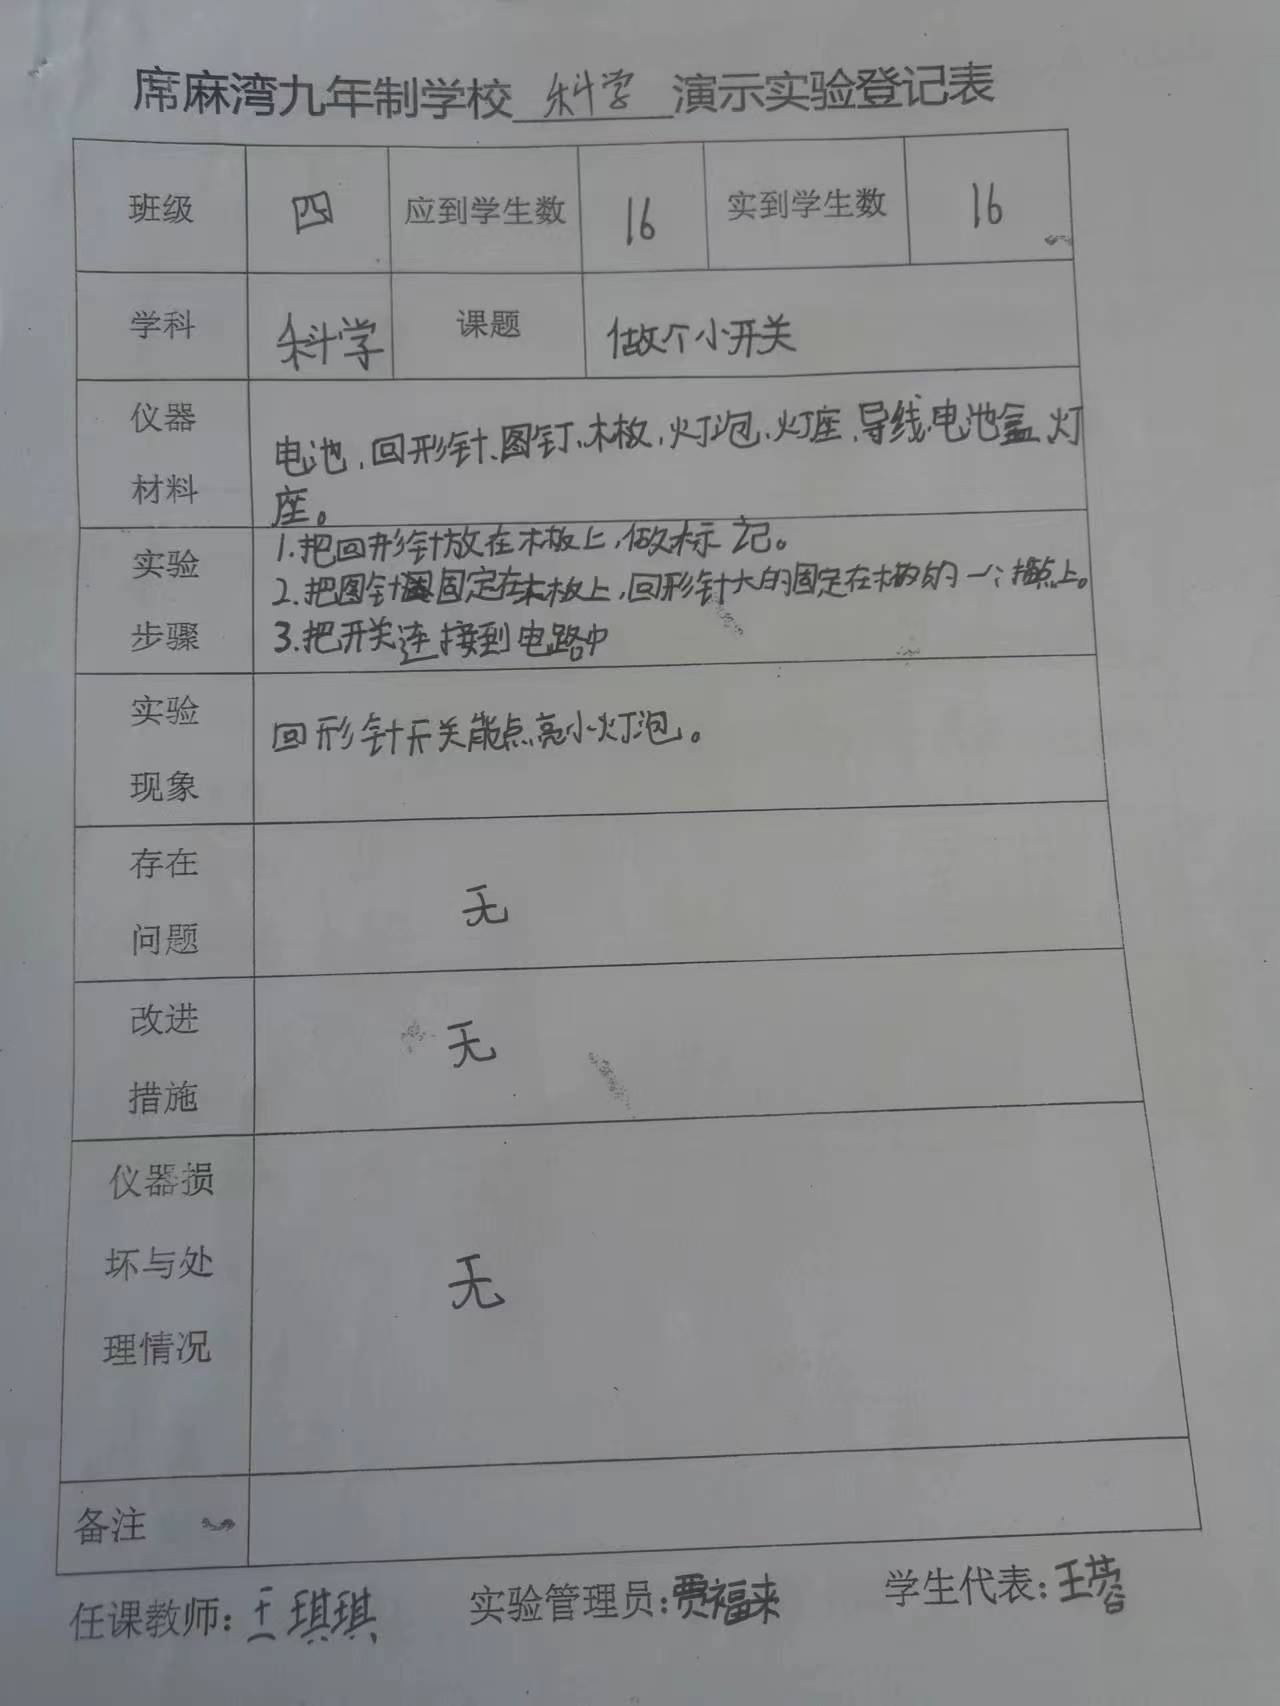 席麻湾九年制学校 科学 演示实验登记表
班级 四 应到学生数 16 实到学生数 16
学科 科学 课题 做个小开关
仪器
材料
电池、回形针、图钉、木板、灯泡、灯座、导线、电池盒、灯
座。
实验
步骤
1.把回形针放在木板上,做标记。
2.把图针固定在木板上,回形针大的固定在木板的一个点上。
3.把开关连接到电路中
实验
现象
回形针开关能点亮小灯泡。
存在
问题
无
改进
措施
无
仪器损
坏与处
理情况
无
备注
任课教师:王琪琪 实验管理员:贾福来 学生代表:王蓉